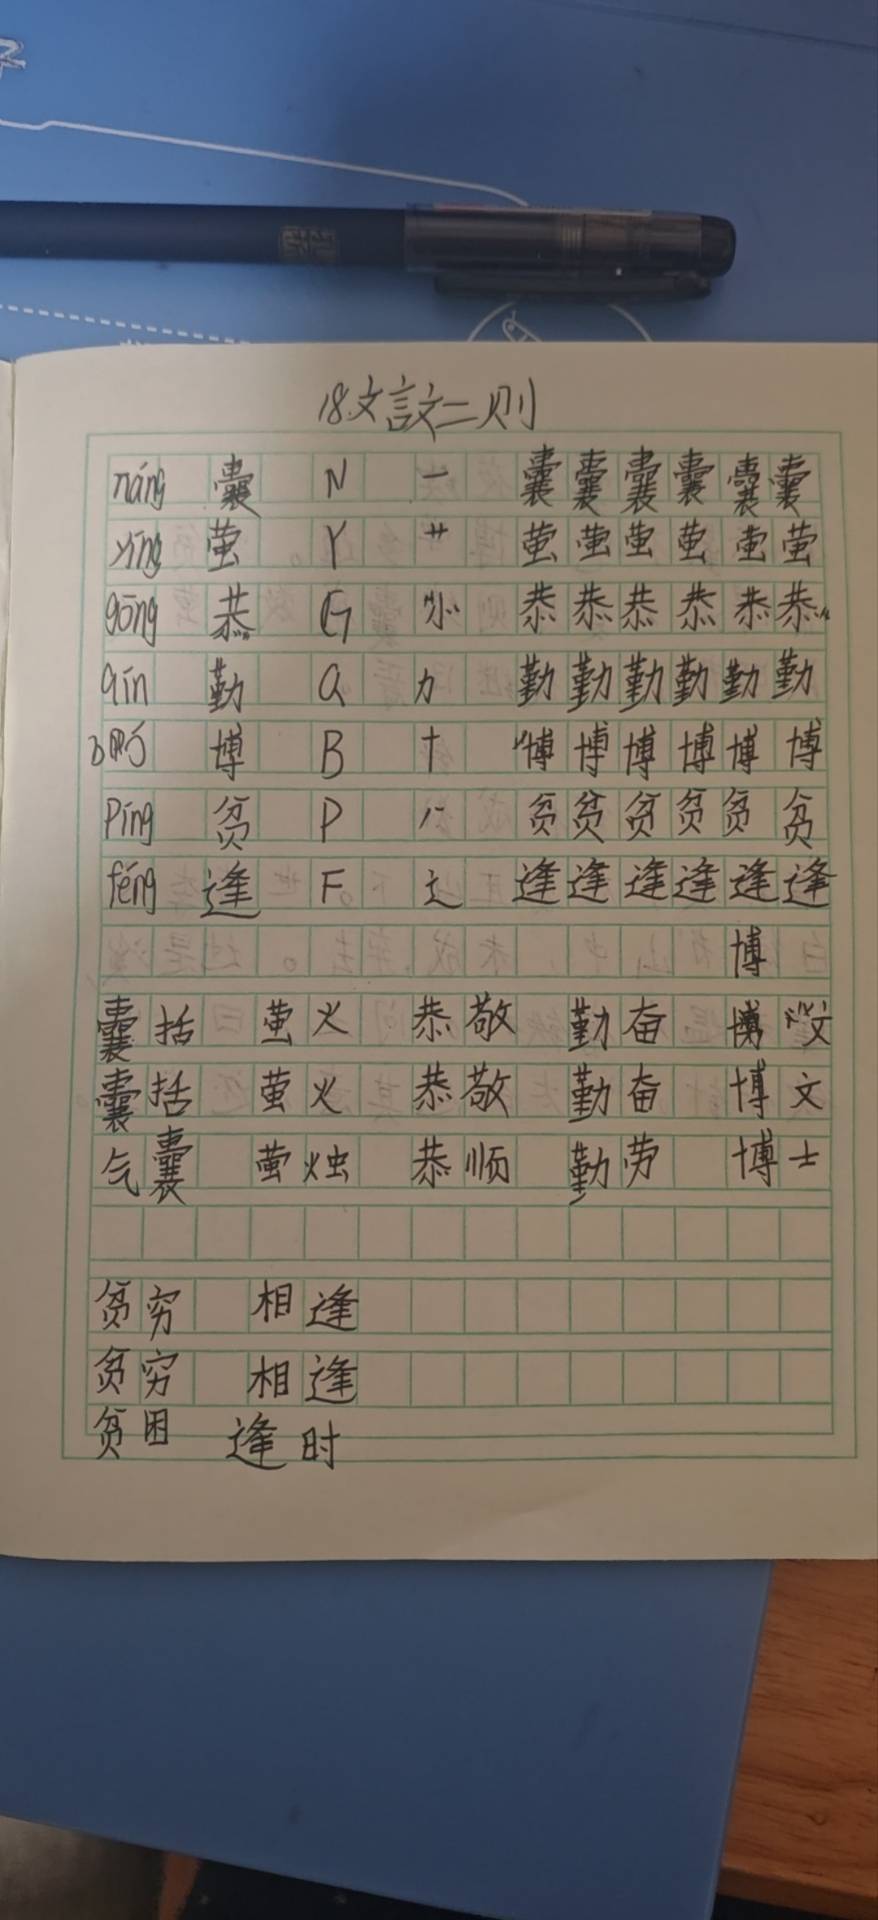 18.文言文二则
náng 囊 N 一 囊囊囊囊囊囊
yíng 萤 Y 艹 萤萤萤萤萤萤
gōng 恭 G 㣺 恭恭恭恭恭恭
qín 勤 Q 力 勤勤勤勤勤勤
博 B 十 博博博博博博
píng 贫 P 八 贫贫贫贫贫贫
féng 逢 F 辶 逢逢逢逢逢逢
博
囊括 萤火 恭敬 勤奋 博文
囊括 萤火 恭敬 勤奋 博文
气囊 萤烛 恭顺 勤劳 博士
贫穷 相逢
贫穷 相逢
贫困 逢时